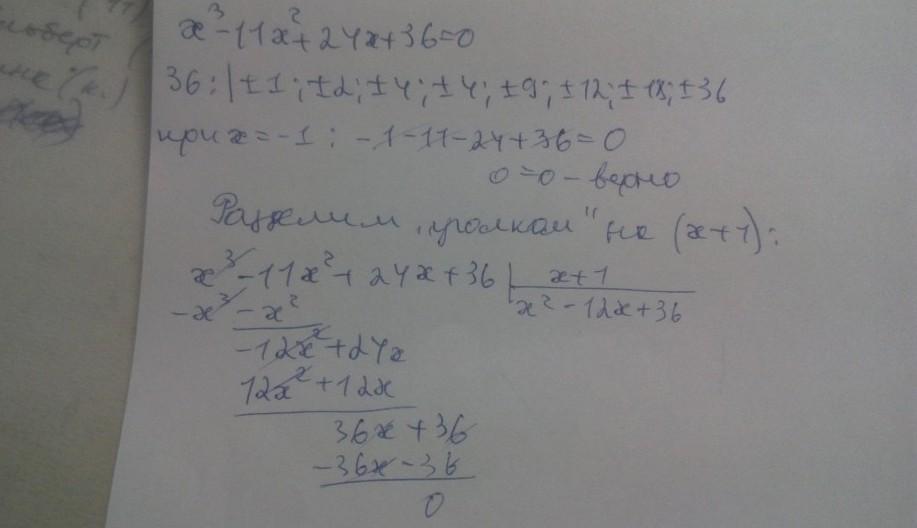 x³-11x²+24x+36=0
36: | ±1; ±2; ±4; ±4; ±9; ±12; ±18; ±36
при x=-1: -1-11-24+36=0
0=0 - верно
Разделим „уголком" на (x+1):
x³-11x²+24x+36 | x+1
-x³-x² x²-12x+36
-12x²+24x
12x²+12x
36x+36
-36x-36
0